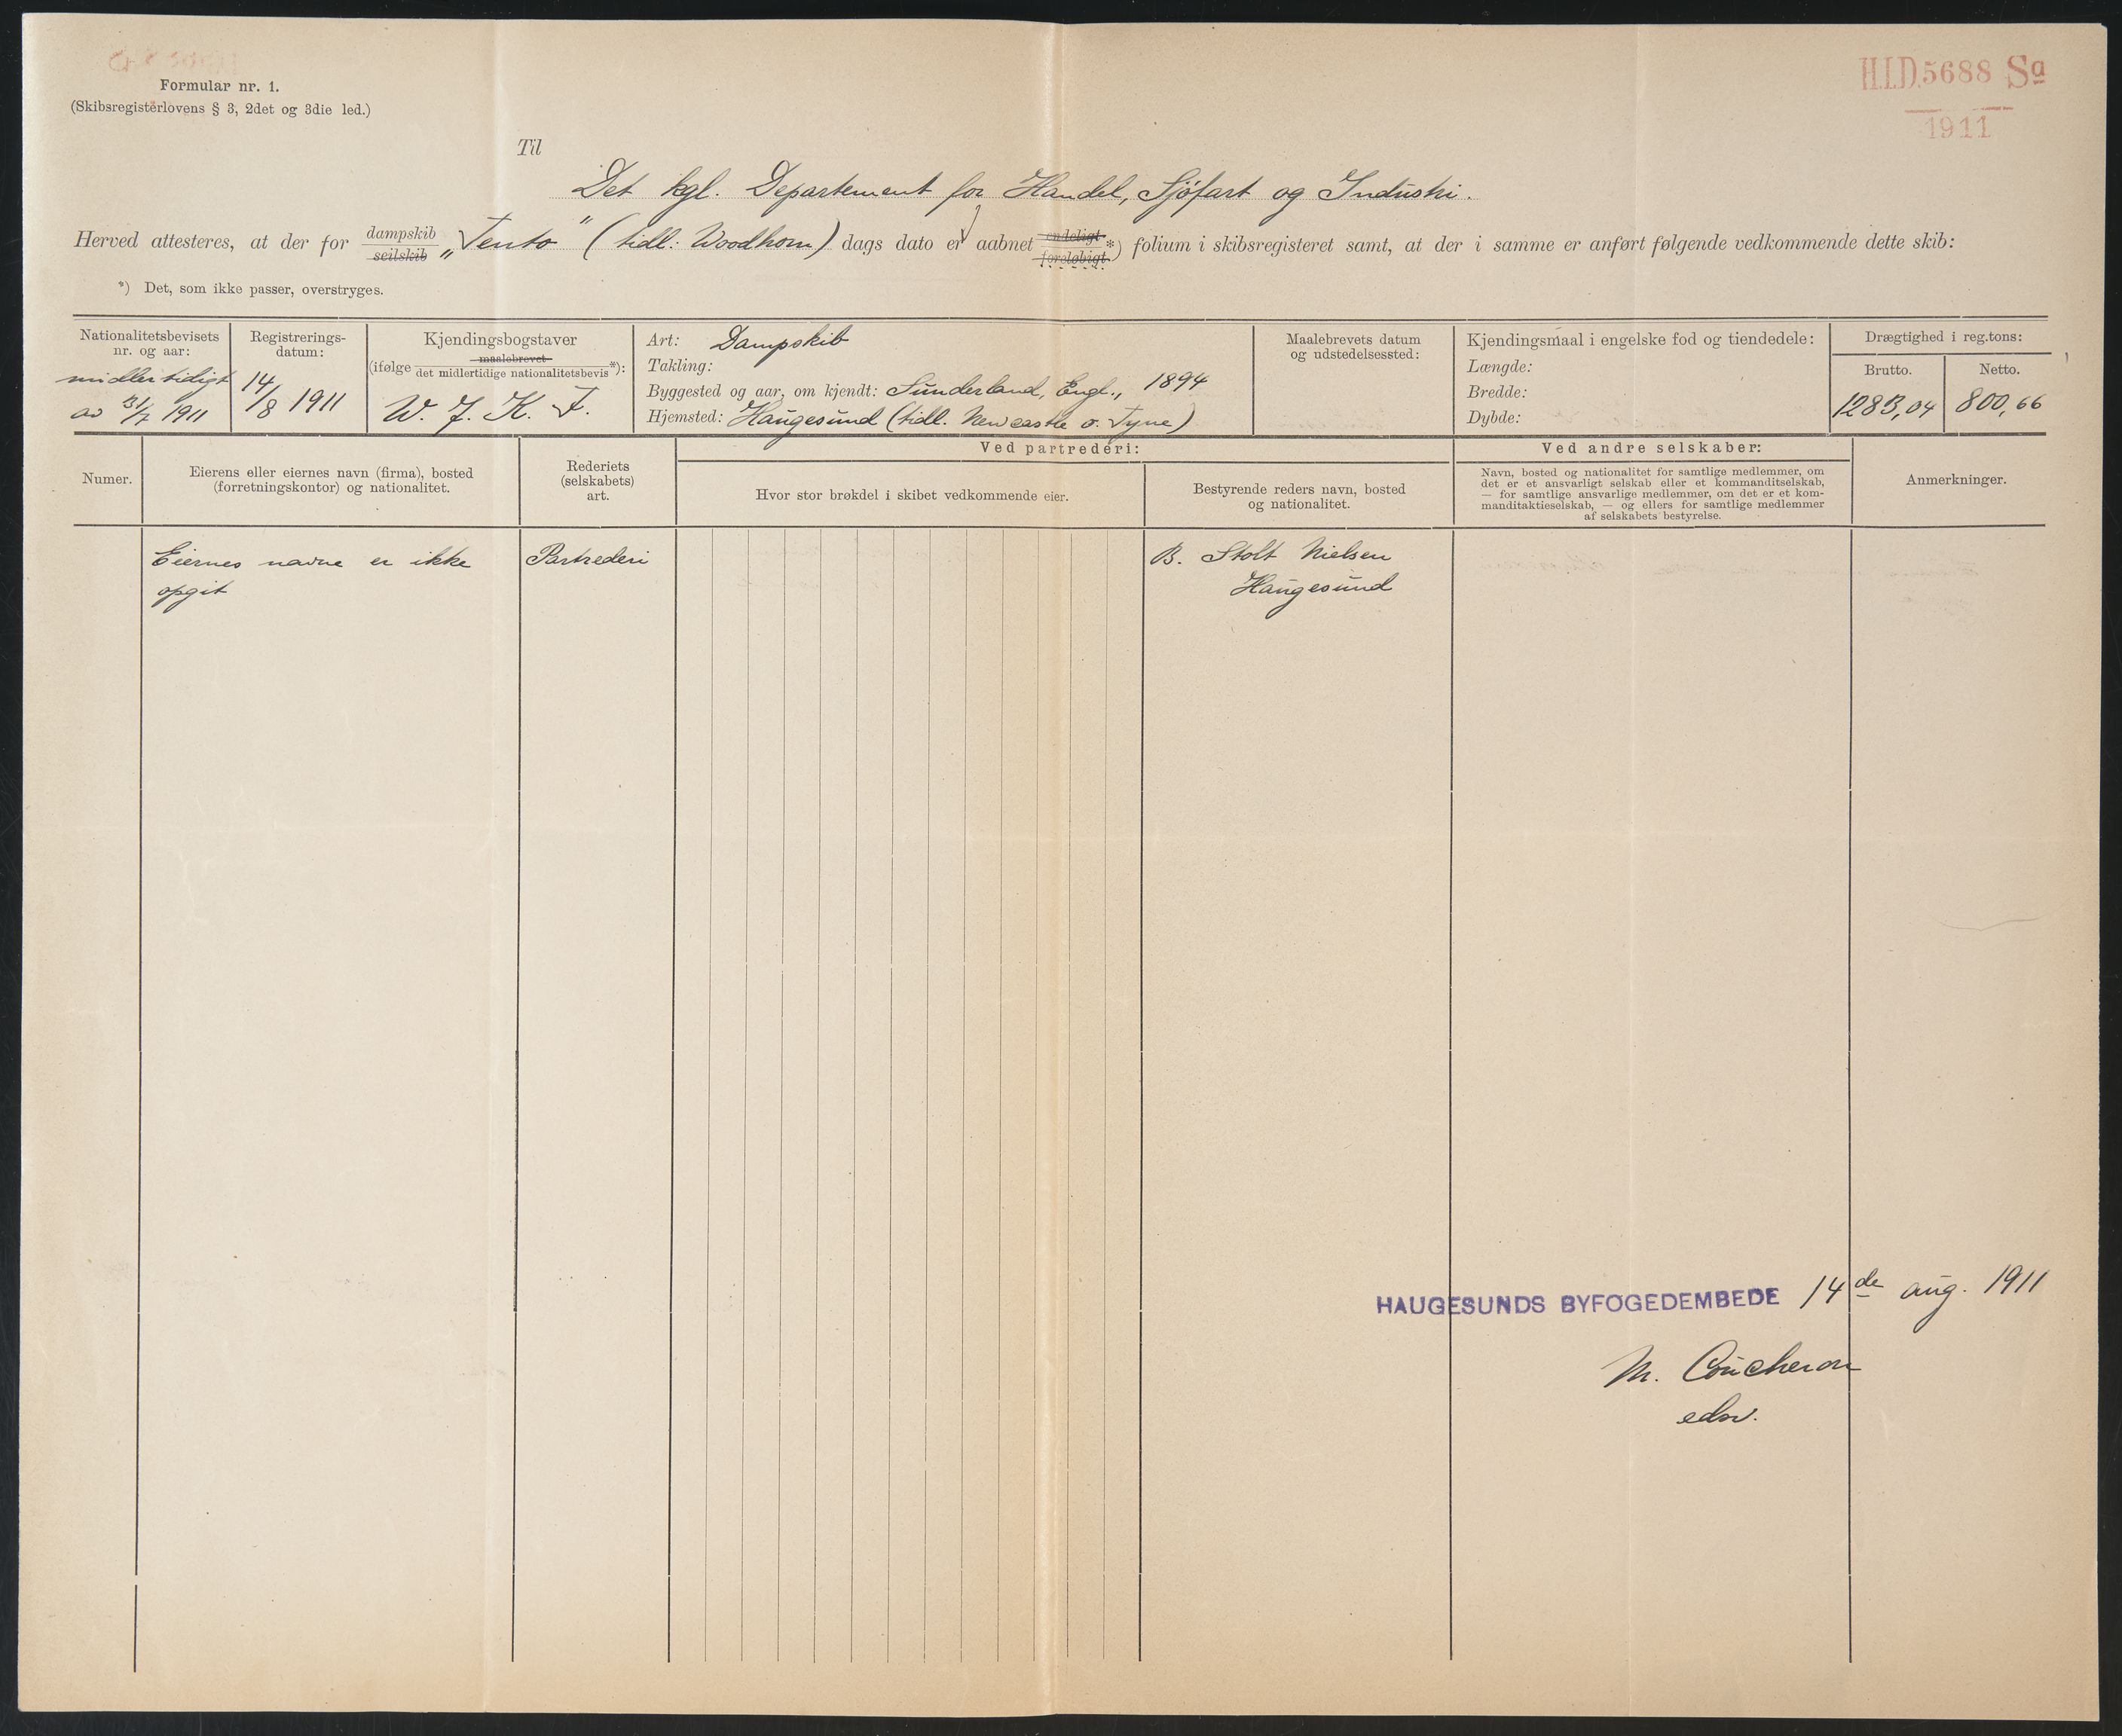 Formular nr. 1.
(Skibsregisterlovens § 3, 2det og 3die led.)
H.I.D. 5688 Sa
1911
Til
Det kgl. Departement for Handel, Sjöfart og Industri.
Herved attesteres, at der for dampskib seilskib „Tento" (tidl.: Woodhorn) dags dato er aabnet endeligt foreløbigt *) folium i skibsregisteret samt, at der i samme er anført følgende vedkommende dette skib:
*) Det, som ikke passer, overstryges.
Nationalitetsbevisets nr. og aar:
midlertidigt av 31/7 1911
Registrerings-datum:
14/8 1911
Kjendingsbogstaver
(ifølge maalebrevet det midlertidige nationalitetsbevis*):
W. J. K. F.
Art: Dampskib
Takling:
Byggested og aar, om kjendt: Sunderland, Engl., 1894
Hjemsted: Haugesund (tidl. Newcastle o. Tyne)
Maalebrevets datum
og udstedelsessted:
Kjendingsmaal i engelske fod og tiendedele:
Længde:
Bredde:
Dybde:
Drægtighed i reg.tons:
Brutto. Netto.
1283,04 800,66
Numer.
Eierens eller eiernes navn (firma), bosted
(forretningskontor) og nationalitet.
Rederiets
(selskabets)
art.
Ved partrederi:
Hvor stor brøkdel i skibet vedkommende eier.
Bestyrende reders navn, bosted
og nationalitet.
Ved andre selskaber:
Navn, bosted og nationalitet for samtlige medlemmer, om
det er et ansvarligt selskab eller et kommanditselskab,
— for samtlige ansvarlige medlemmer, om det er et kom-
manditaktieselskab, — og ellers for samtlige medlemmer
af selskabets bestyrelse.
Anmerkninger.
Eiernes navne er ikke
opgit
Partrederi
B. Stolt Nielsen
Haugesund
HAUGESUNDS BYFOGEDEMBEDE 14de aug. 1911
M. Coucheron
edsv.